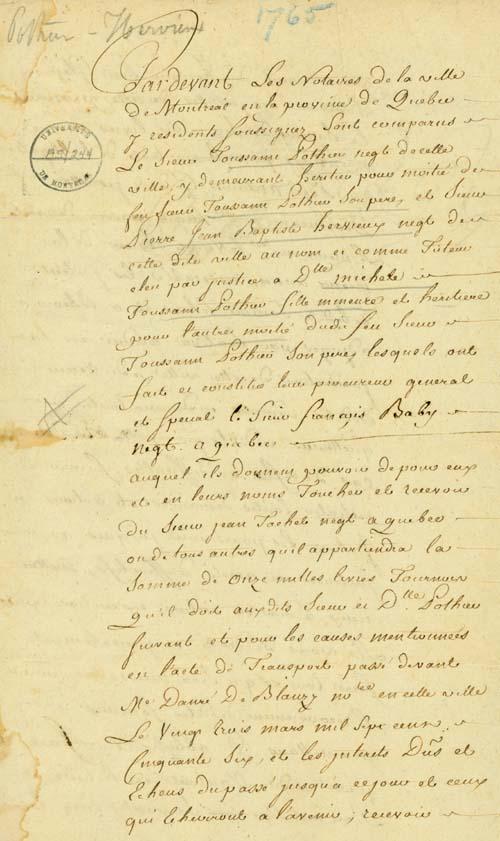 Pothier - Hervieux
1765
UNIVERSITÉ
DE MONTRÉAL
Pardevant Les Notaires de la ville
de Montreal en la province de Quebec
y residents soussignez, sont comparus
Le Sieur Toussaint Pothier negt de cette
ville, y demeurant heritier pour moitié de
feu sieur Toussaint Pothier son pere, et sieur
Pierre Jean Baptiste hervieux negt de
cette dite ville au nom et comme Tuteur
eleu par justice a Dlle michele
Toussaint Pothier fille mineure et heritiere
pour l'autre moitié dudit feu Sieur
Toussaint Pothier son pere, lesquels ont
fait et constitué leur procureur general
et special le Sieur françois Baby
negt. a quebec
auquel ils donnent pouvoir de pour eux
et en leurs noms Toucher et recevoir
du Sieur jean Tachet negt a quebec
ou de tous autres qu'il appartiendra la
somme de onze milles livres Tournois
qu'il doit auxdits Sieur et Dlle Pothier
suivant et pour les causes mentionnées
en l'acte de Transport passé devant
Me Danré De Blanzy notre en cette ville
Le Vingt trois mars mil sept cent
Cinquante Six, et les interets Dûs et
Echeus du passé jusqu'a ce jour et ceux
qui Echeiront a l'avenir; recevoir